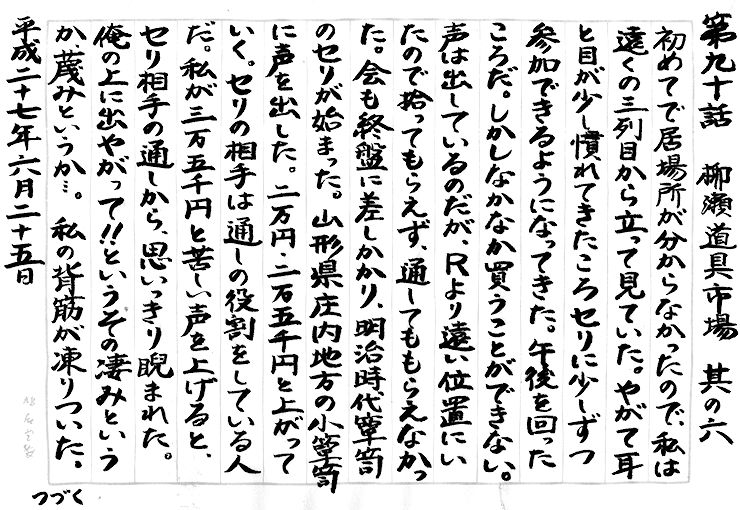 第九十話　柳瀬道具市場　其の六
初めてで居場所が分からなかったので、私は
遠くの三列目から立って見ていた。やがて耳
と目が少し慣れてきたころセリに少しずつ
参加できるようになってきた。午後を回った
ころだ。しかしなかなか買うことができない。
声は出しているのだが、Rより遠い位置にい
たので拾ってもらえず、通してももらえなかっ
た。会も終盤に差しかかり、明治時代箪笥
のセリが始まった。山形県庄内地方の小箪笥
に声を出した。二万円・二万五千円と上がって
いく。セリの相手は通しの役割をしている人
だ。私が三万五千円と苦しい声を上げると、
セリ相手の通しから、思いっきり睨まれた。
俺の上に出やがって!!というその凄みという
か、蔑みというか…。私の背筋が凍りついた。
平成二十七年六月二十五日
つづく